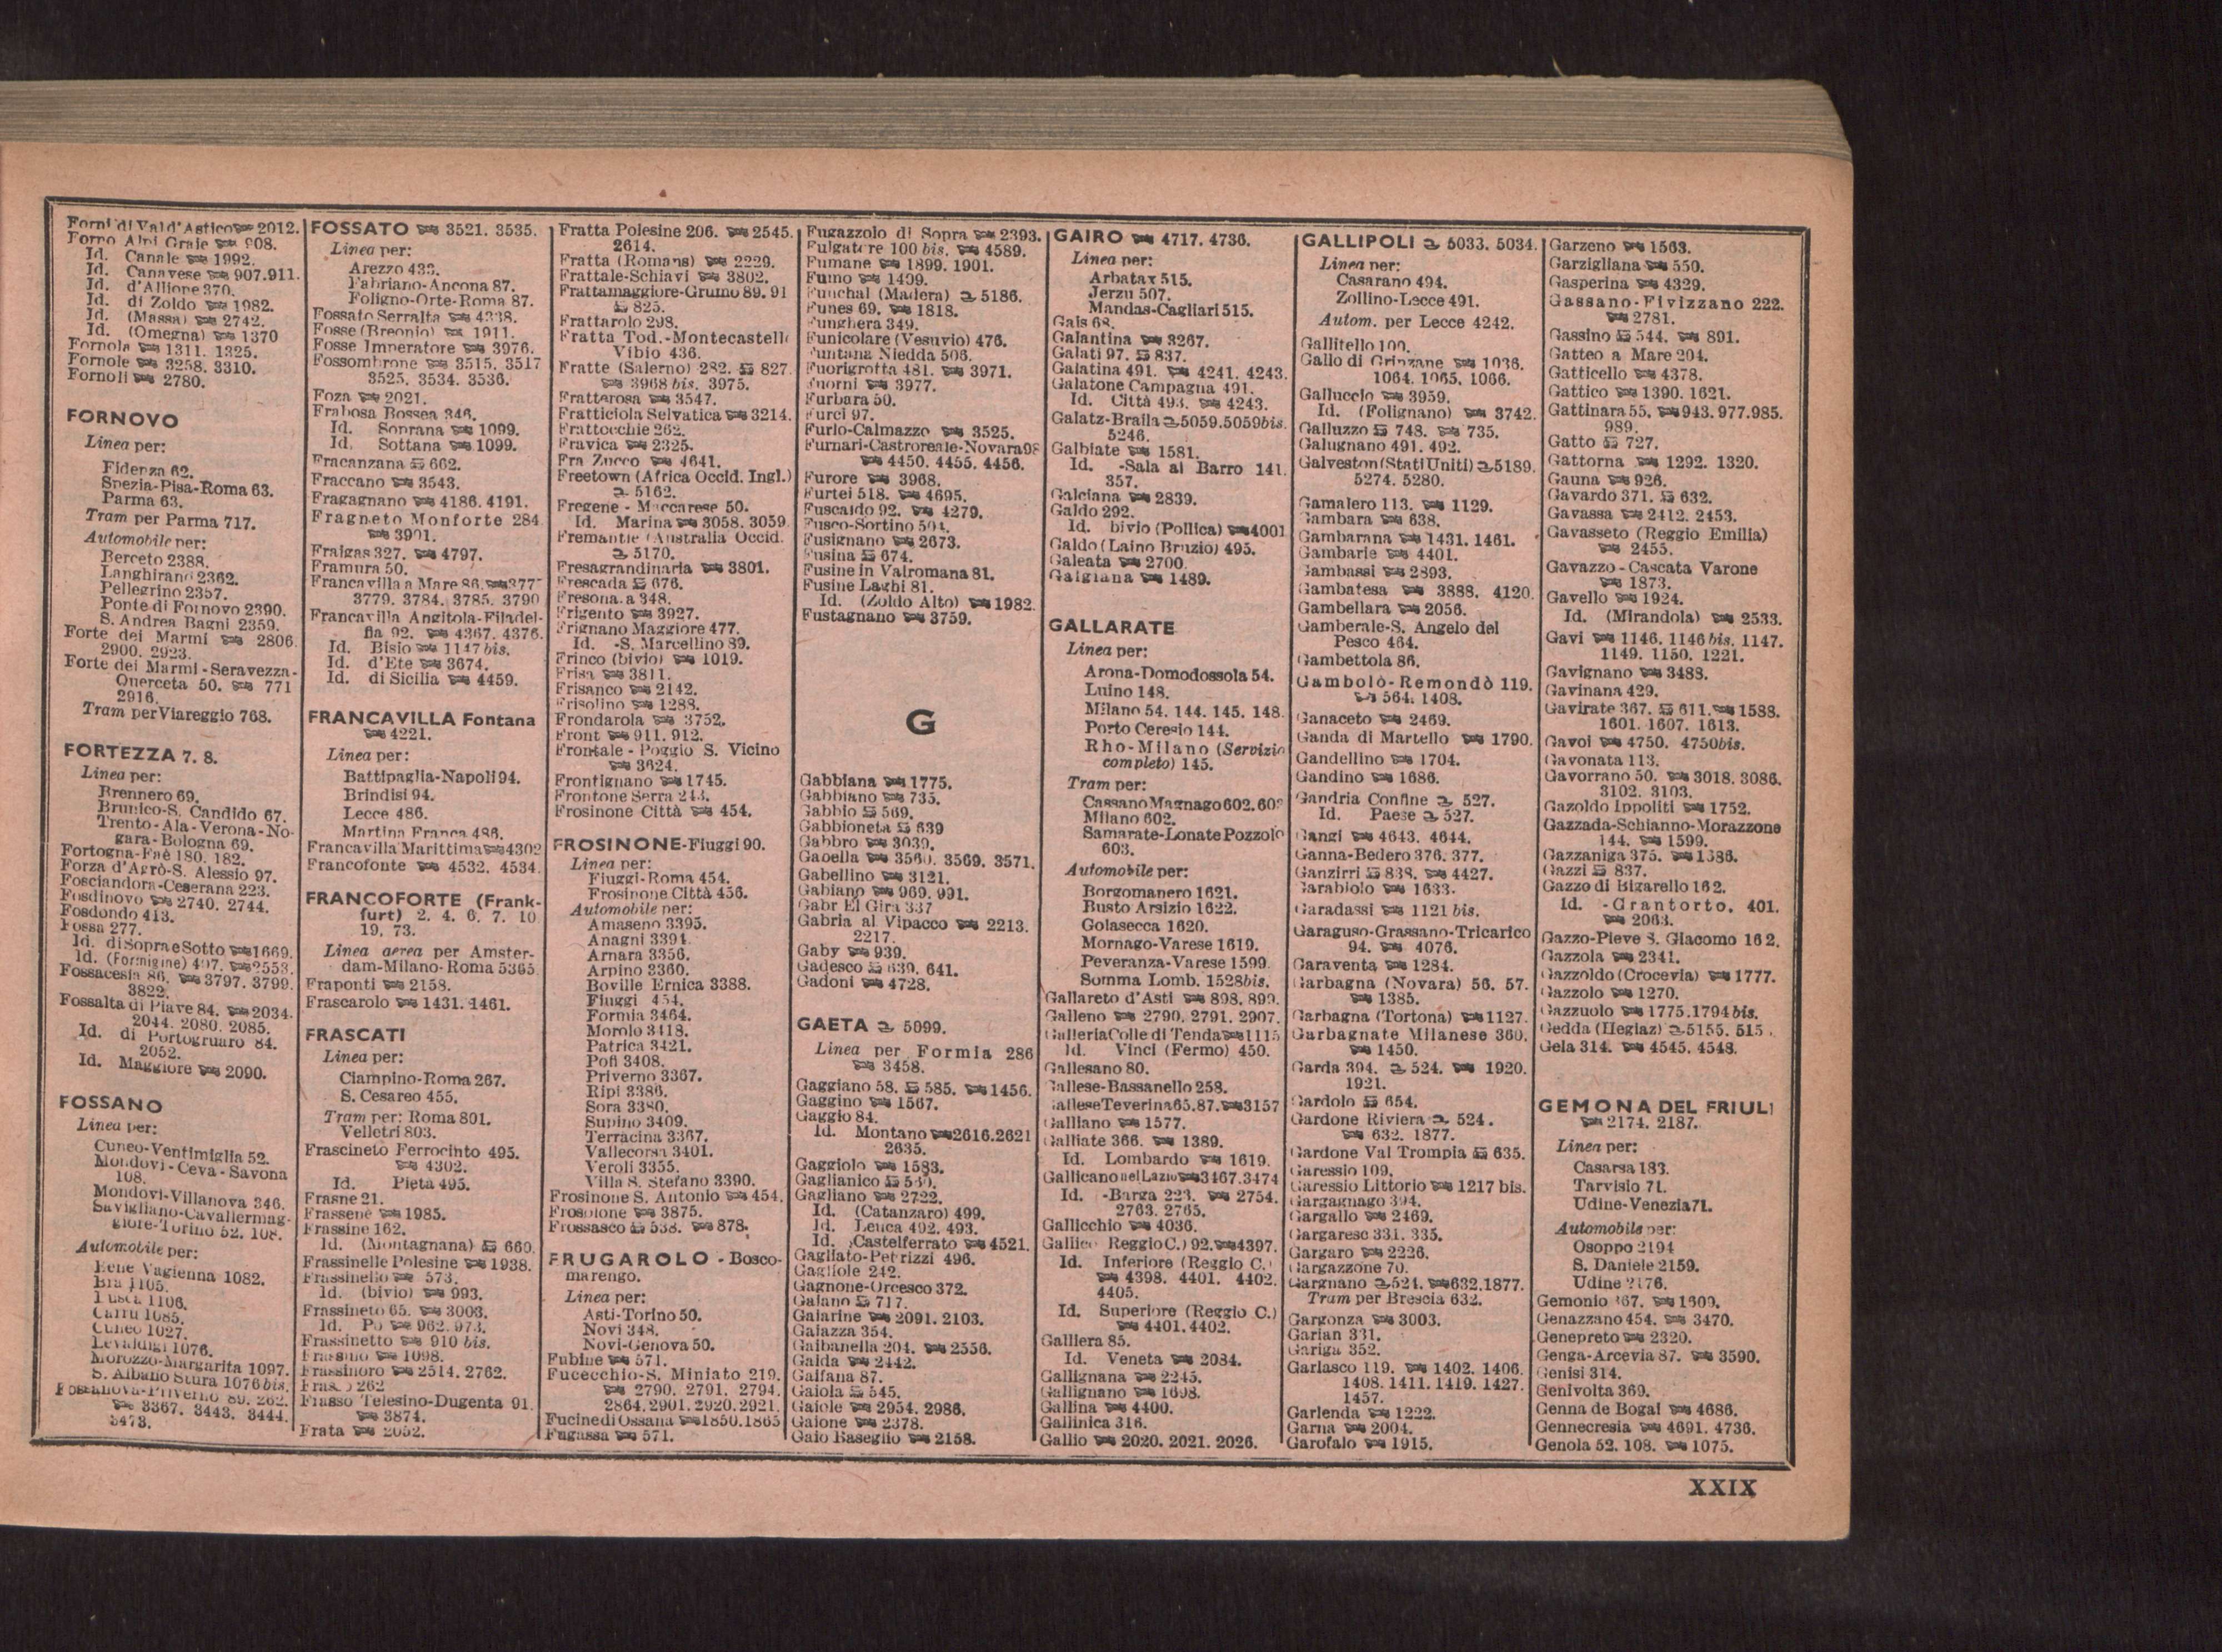 Forni di Val d'Astico 2012.
Forno Alpi Graie 908.
Id. Canale 1992.
Id. Canavese 907.911.
Id. d'Allione 370.
Id. di Zoldo 1982.
Id. (Massa) 2742.
Id. (Omegna) 1370
Fornola 1311. 1325.
Fornole 3258. 3310.
Fornoli 2780.
FORNOVO
Linea per:
Fidenza 62.
Spezia-Pisa-Roma 63.
Parma 63.
Tram per Parma 717.
Automobile per:
Berceto 2388.
Langhirano 2362.
Pellegrino 2357.
Ponte di Fornovo 2390.
S. Andrea Bagni 2359.
Forte dei Marmi 2806.
2900. 2923.
Forte dei Marmi-Seravezza-
Querceta 50. 771
2916.
Tram per Viareggio 768.
FORTEZZA 7. 8.
Linea per:
Brennero 69.
Brunico-S. Candido 67.
Trento-Ala-Verona-No-
gara-Bologna 69.
Fortogna-Faè 180. 182.
Forza d'Agrò-S. Alessio 97.
Fosciandora-Ceserana 223.
Fosdinovo 2740. 2744.
Fosdondo 413.
Fossa 277.
Id. di Sopra e Sotto 1669.
Id. (Formigine) 407. 2553.
Fossacesia 86. 3797. 3799.
3822.
Fossalta di Piave 84. 2034.
2044. 2080. 2085.
Id. di Portogruaro 84.
2052.
Id. Maggiore 2090.
FOSSANO
Linea per:
Cuneo-Ventimiglia 52.
Mondovì-Ceva-Savona
108.
Mondovì-Villanova 346.
Savigliano-Cavallermag-
giore-Torino 52. 108.
Automobile per:
Bene Vagienna 1082.
Bra 1105.
Busca 1106.
Carrù 1085.
Cuneo 1027.
Levaldigi 1076.
Morozzo-Margarita 1097.
S. Albano Stura 1076bis.
Fossanova-Priverno 89. 262.
3367. 3443. 3444.
3473.
FOSSATO 3521. 3535.
Linea per:
Arezzo 433.
Fabriano-Ancona 87.
Foligno-Orte-Roma 87.
Fossato Serralta 4338.
Fosse (Breonio) 1911.
Fosse Imperatore 3976.
Fossombrone 3515. 3517
3525. 3534. 3536.
Foza 2021.
Frabosa Bossea 346.
Id. Soprana 1099.
Id. Sottana 1099.
Fracanzana 662.
Fraccano 3543.
Fragagnano 4186. 4191.
Fragneto Monforte 284
3901.
Fraigas 327. 4797.
Framura 50.
Francavilla a Mare 86. 3777
3779. 3784. 3785. 3790
Francavilla Angitola-Filadel-
fia 92. 4367. 4376.
Id. Bisio 1147bis.
Id. d'Ete 3674.
Id. di Sicilia 4459.
FRANCAVILLA Fontana
4221.
Linea per:
Battipaglia-Napoli 94.
Brindisi 94.
Lecce 486.
Martina Franca 486.
Francavilla Marittima 4302
Francofonte 4532. 4534.
FRANCOFORTE (Frank-
furt) 2. 4. 6. 7. 10
19. 73.
Linea aerea per Amster-
dam-Milano-Roma 5365
Fraponti 2158.
Frascarolo 1431. 1461.
FRASCATI
Linea per:
Ciampino-Roma 267.
S. Cesareo 455.
Tram per: Roma 801.
Velletri 803.
Frascineto Ferrocinto 495.
4302.
Id. Pietà 495.
Frasne 21.
Frassenè 1985.
Frassine 162.
Id. (Montagnana) 660.
Frassinelle Polesine 1938.
Frassinello 573.
Id. (bivio) 993.
Frassineto 65. 3003.
Id. Po 962. 973.
Frassinetto 910 bis.
Frassino 1098.
Frassinoro 2514. 2762.
Frasso 262
Frasso Telesino-Dugenta 91.
3874.
Frata 2052.
Fratta Polesine 206. 2545.
2614.
Fratta (Romans) 2229.
Frattale-Schiavi 3802.
Frattamaggiore-Grumo 89. 91
825.
Frattarolo 298.
Fratta Tod.-Montecastello
Vibio 436.
Fratte (Salerno) 282. 827.
3968 bis. 3975.
Fratterosa 3547.
Fratticiola Selvatica 3214.
Frattocchie 262.
Fravica 2325.
Fra Zucco 4641.
Freetown (Africa Occid. Ingl.)
5162.
Fregene-Maccarese 50.
Id. Marina 3058. 3059
Fremantle (Australia Occid.
5170.
Fresagrandinaria 3801.
Frescada 676.
Fresonara 348.
Frigento 3927.
Frignano Maggiore 477.
Id. -S. Marcellino 89.
Frinco (bivio) 1019.
Frisa 3811.
Frisanco 2142.
Frisolino 1288.
Frondarola 3752.
Front 911. 912.
Frontale-Poggio S. Vicino
3624.
Frontignano 1745.
Frontone Serra 243.
Frosinone Città 454.
FROSINONE-Fiuggi 90.
Linea per:
Fiuggi-Roma 454.
Frosinone Città 456.
Automobile per:
Amaseno 3395.
Anagni 3394.
Arnara 3356.
Arpino 3360.
Boville Ernica 3388.
Fiuggi 454.
Formia 3464.
Morolo 3418.
Patrica 3421.
Pofi 3408.
Priverno 3367.
Ripi 3386.
Sora 3380.
Supino 3409.
Terracina 3367.
Vallecorsa 3401.
Veroli 3355.
Villa S. Stefano 3390.
Frosinone S. Antonio 454.
Frosolone 3875.
Frossasco 538. 878.
FRUGAROLO - Bosco-
marengo.
Linea per:
Asti-Torino 50.
Novi 348.
Novi-Genova 50.
Fubine 571.
Fucecchio-S. Miniato 219.
2790. 2791. 2794.
2864. 2901. 2920. 2921.
Fucine di Ossana 1850. 1865
Fugassa 571.
Fugazzolo di Sopra 2393.
Fulgatore 100 bis. 4589.
Fumane 1899. 1901.
Fumo 1409.
Funchal (Madera) 5186.
Funes 69. 1818.
Funghera 349.
Funicolare (Vesuvio) 476.
Funtana Niedda 506.
Fuorigrotta 481. 3971.
Fuorni 3977.
Furbara 50.
Furci 97.
Furlo-Calmazzo 3525.
Furnari-Castroreale-Novara 98
4450. 4455. 4456.
Furore 3968.
Furtei 518. 4695.
Fuscaldo 92. 4279.
Fusco-Sortino 504.
Fusignano 2673.
Fusina 674.
Fusine in Valromana 81.
Fusine Laghi 81.
Id. (Zoldo Alto) 1982.
Fustagnano 3759.
G
Gabbiana 1775.
Gabbiano 735.
Gabbio 569.
Gabbioneta 639
Gabbro 3039.
Gabella 3560. 3569. 3571.
Gabellino 3121.
Gabiano 969. 991.
Gabr El Gira 337
Gabria al Vipacco 2213.
2217.
Gaby 939.
Gadesco 639. 641.
Gadoni 4728.
GAETA 5099.
Linea per Formia 286
3458.
Gaggiano 58. 585. 1456.
Gaggino 1567.
Gaggio 84.
Id. Montano 2616.2621
2635.
Gaggiolo 1583.
Gaglianico 530.
Gagliano 2722.
Id. (Catanzaro) 499.
Id. Leuca 492. 493.
Id. Castelferrato 4521.
Gagliato-Petrizzi 496.
Gagliole 242.
Gagnone-Orcesco 372.
Gaiano 717.
Gaiarine 2091. 2103.
Gaiazza 354.
Gaibanella 204. 2556.
Gaida 2442.
Gaifana 87.
Gaiola 545.
Gaiole 2954. 2986.
Gaione 2378.
Gaio Baseglio 2158.
GAIRO 4717. 4736.
Linea per:
Arbatax 515.
Jerzu 507.
Mandas-Cagliari 515.
Gais 68.
Galantina 3267.
Galati 97. 837.
Galatina 491. 4241. 4243.
Galatone Campagna 491.
Id. Città 493. 4243.
Galatz-Braila 5059.5059bis.
5246.
Galbiate 1581.
Id. -Sala al Barro 141.
357.
Galciana 2839.
Galdo 292.
Id. bivio (Pollica) 4001
Galdo (Laino Bruzio) 495.
Galeata 2700.
Galgiana 1489.
GALLARATE
Linea per:
Arona-Domodossola 54.
Luino 148.
Milano 54. 144. 145. 148.
Porto Ceresio 144.
Rho-Milano (Servizio
completo) 145.
Tram per:
Cassano Magnago 602. 603
Milano 602.
Samarate-Lonate Pozzolo
603.
Automobile per:
Borgomanero 1621.
Busto Arsizio 1622.
Golasecca 1620.
Mornago-Varese 1619.
Peveranza-Varese 1599.
Somma Lomb. 1528bis.
Gallareto d'Asti 898. 899.
Galleno 2790. 2791. 2907.
Galleria Colle di Tenda 1115
Id. Vinci (Fermo) 450.
Gallesano 80.
Gallese-Bassanello 258.
Gallese Teverina 65.87. 3157
Galliano 1577.
Galliate 366. 1389.
Id. Lombardo 1619.
Gallicano nel Lazio 3467.3474
Id. -Barga 223. 2754.
2763. 2765.
Gallicchio 4036.
Gallico Reggio C.) 92. 4397.
Id. Inferiore (Reggio C.)
4398. 4401. 4402.
4405.
Id. Superiore (Reggio C.)
4401. 4402.
Galliera 85.
Id. Veneta 2084.
Gallignana 2245.
Gallignano 1698.
Gallina 4400.
Gallinica 316.
Gallio 2020. 2021. 2026.
GALLIPOLI 5033. 5034.
Linea per:
Casarano 494.
Zollino-Lecce 491.
Autom. per Lecce 4242.
Gallitello 100.
Gallo di Grinzane 1036.
1064. 1065. 1066.
Galluccio 3959.
Id. (Folignano) 3742.
Galluzzo 748. 735.
Galugnano 491. 492.
Galveston (Stati Uniti) 5189.
5274. 5280.
Gamalero 113. 1129.
Gambara 638.
Gambarana 1431. 1461.
Gambarie 4401.
Gambassi 2893.
Gambatesa 3888. 4120.
Gambellara 2056.
Gamberale-S. Angelo del
Pesco 464.
Gambettola 86.
Gambolò-Remondò 119.
564. 1408.
Ganaceto 2469.
Ganda di Martello 1790.
Gandellino 1704.
Gandino 1686.
Gandria Confine 527.
Id. Paese 527.
Gangi 4643. 4644.
Ganna-Bedero 376. 377.
Ganzirri 838. 4427.
Garabiolo 1633.
Garadassi 1121 bis.
Garaguso-Grassano-Tricarico
94. 4076.
Garaventa 1284.
Garbagna (Novara) 56. 57.
1385.
Garbagna (Tortona) 1127.
Garbagnate Milanese 360.
1450.
Garda 394. 524. 1920.
1921.
Gardolo 654.
Gardone Riviera 524.
632. 1877.
Gardone Val Trompia 635.
Garessio 109.
Garessio Littorio 1217 bis.
Gargagnago 394.
Gargallo 2469.
Gargaresc 331. 335.
Gargaro 2226.
Gargazzone 70.
Gargnano 524. 632.1877.
Tram per Brescia 632.
Gargonza 3003.
Garian 331.
Gariga 352.
Garlasco 119. 1402. 1406.
1408. 1411. 1419. 1427.
1457.
Garlenda 1222.
Garna 2004.
Garofalo 1915.
Garzeno 1563.
Garzigliana 550.
Gasperina 4329.
Gassano-Fivizzano 222.
2781.
Gassino 544. 891.
Gatteo a Mare 204.
Gatticello 4378.
Gattico 1390. 1621.
Gattinara 55. 943. 977.985.
989.
Gatto 727.
Gattorna 1292. 1320.
Gauna 926.
Gavardo 371. 632.
Gavassa 2412. 2453.
Gavasseto (Reggio Emilia)
2455.
Gavazzo-Cascata Varone
1873.
Gavello 1924.
Id. (Mirandola) 2533.
Gavi 1146. 1146 bis. 1147.
1149. 1150. 1221.
Gavignano 3488.
Gavinana 429.
Gavirate 367. 611. 1588.
1601. 1607. 1613.
Gavoi 4750. 4750bis.
Gavonata 113.
Gavorrano 50. 3018. 3086.
3102. 3103.
Gazoldo Ippoliti 1752.
Gazzada-Schianno-Morazzone
144. 1599.
Gazzaniga 375. 1686.
Gazzi 837.
Gazzo di Bigarello 162.
Id. -Grantorto. 401.
2063.
Gazzo-Pieve S. Giacomo 162.
Gazzola 2341.
Gazzoldo (Crocevia) 1777.
Gazzolo 1270.
Gazzuolo 1775.1794bis.
Gedda (Hegiaz) 5155. 515
Gela 314. 4545. 4548.
GEMONA DEL FRIULI
2174. 2187.
Linea per:
Casarsa 183.
Tarvisio 71.
Udine-Venezia 71.
Automobile per:
Osoppo 2194
S. Daniele 2159.
Udine 2176.
Gemonio 367. 1609.
Genazzano 454. 3470.
Genepreto 2320.
Genga-Arcevia 87. 3590.
Genisi 314.
Genivolta 369.
Genna de Bogai 4686.
Gennecresia 4691. 4736.
Genola 52. 108. 1075.
XXIX